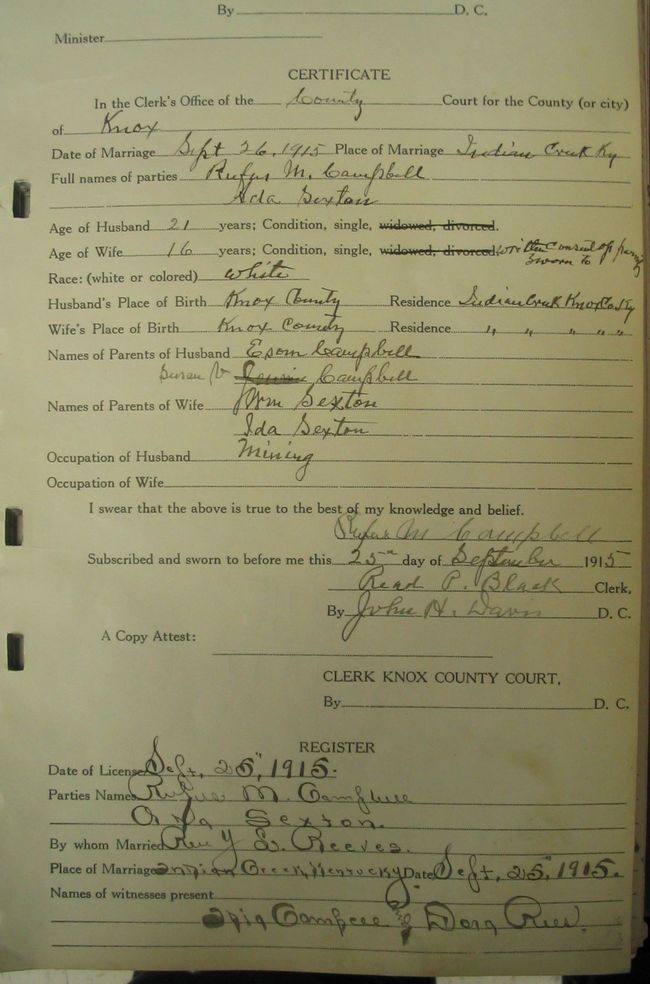 By D. C.
Minister
CERTIFICATE
In the Clerk's Office of the County Court for the County (or city)
of Knox
Date of Marriage Sept 26, 1915 Place of Marriage Indian Creek Ky
Full names of parties Rufus M. Campbell
Ada Sexton
Age of Husband 21 years; Condition, single, widowed, divorced.
Age of Wife 16 years; Condition, single, widowed, divorced. written consent of
sworn to
Race: (white or colored) white
Husband's Place of Birth Knox County Residence Indian Creek Knox Co Ky
Wife's Place of Birth Knox County Residence " " " " "
Names of Parents of Husband Esom Campbell
Susan V Campbell
Names of Parents of Wife Wm Sexton
Ida Sexton
Occupation of Husband Mining
Occupation of Wife
I swear that the above is true to the best of my knowledge and belief.
Rufus M Campbell
Subscribed and sworn to before me this 25th day of September 1915
Read P. Black Clerk,
By John H. Davis D. C.
A Copy Attest:
CLERK KNOX COUNTY COURT,
By D. C.
REGISTER
Date of License Sept, 25", 1915.
Parties Names Rufus M. Campbell
Ada Sexton.
By whom Married Rev Y L. Reeves.
Place of Marriage Indian Creek, Kentucky Date Sept, 25", 1915.
Names of witnesses present
Dora